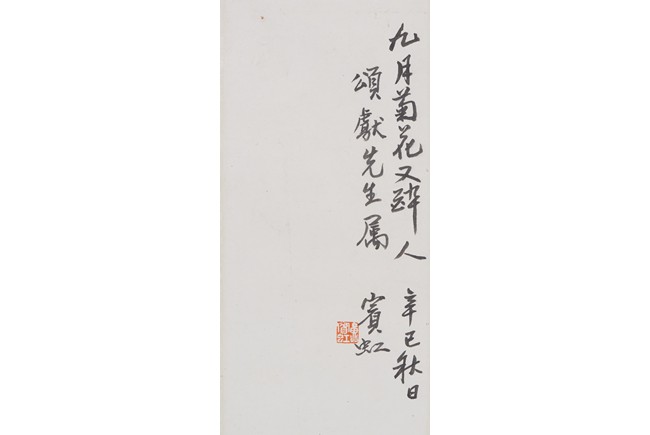 九月菊花又醉人　辛巳秋日
頌獻先生属　賓虹